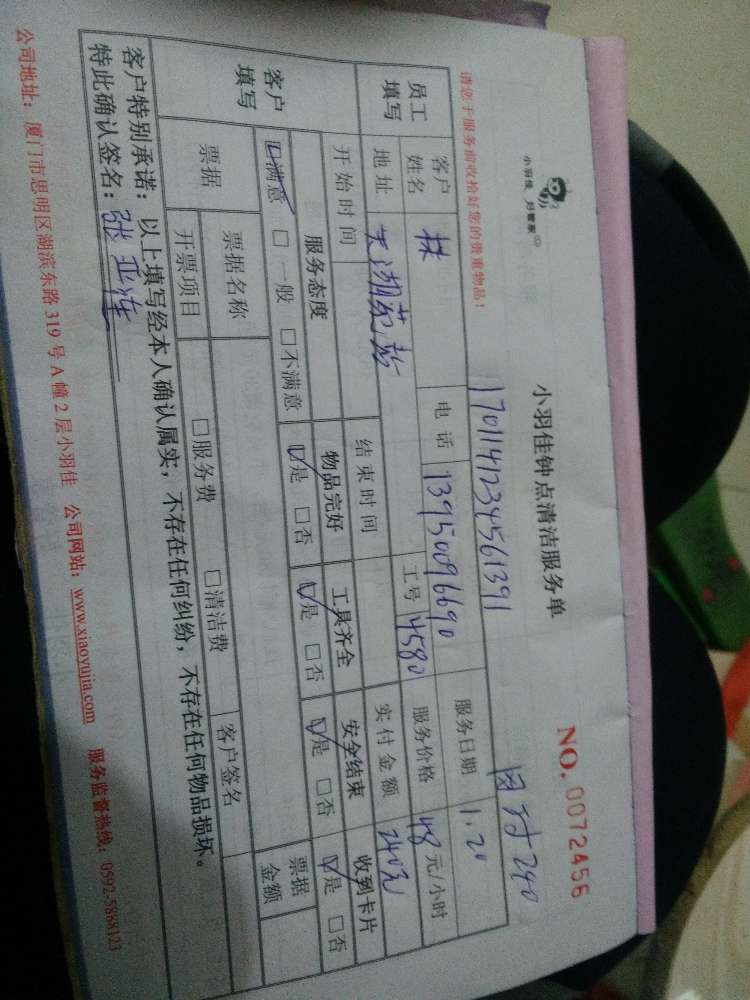 小羽佳 好管家
小羽佳钟点清洁服务单
NO. 0072456
请您于服务前收拾好您的贵重物品！
1701141234561391
因付240
员工填写
客户姓名 林 电话 13950096690 服务日期 1.20
地址 工号 4580 服务价格 48 元/小时
开始时间 结束时间 实付金额 240元
客户填写
服务态度 物品完好 工具齐全 安全结束 收到卡片
☑满意 □一般 □不满意 ☑是 □否 ☑是 □否 ☑是 □否 ☑是 □否
票据 票据名称 客户签名 票据金额
开票项目 □服务费 □清洁费
客户特别承诺：以上填写经本人确认属实，不存在任何纠纷，不存在任何物品损坏。
特此确认签名：张亚莲
公司地址：厦门市思明区湖滨东路319号A幢2层小羽佳 公司网站：www.xiaoyujia.com 服务监督热线：0592-5868123